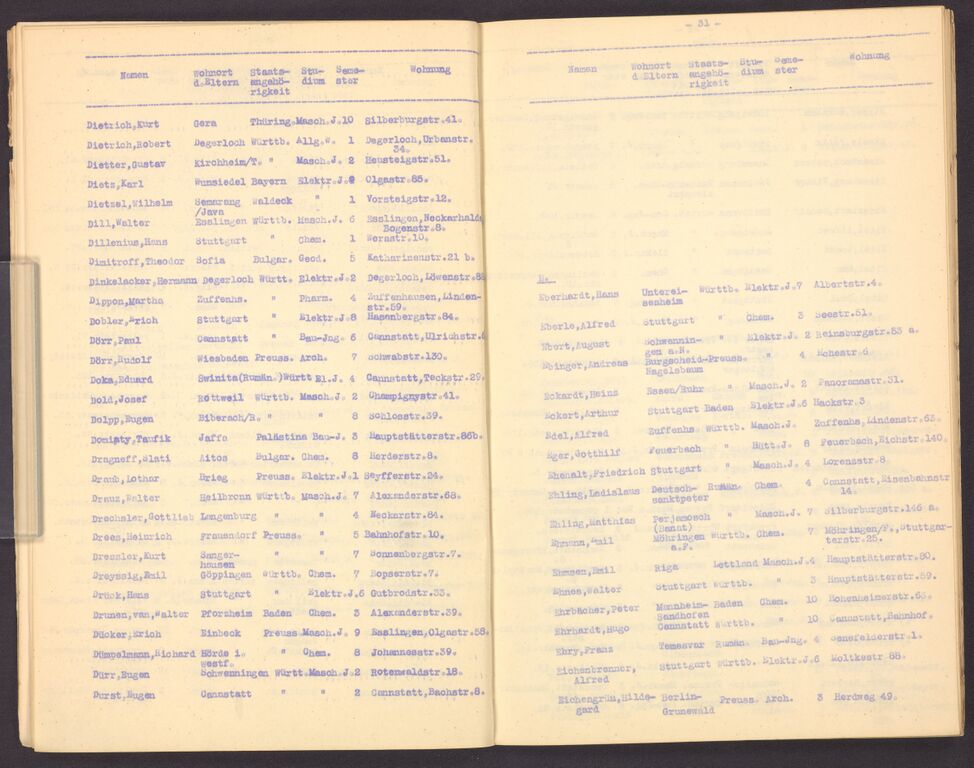 Namen Wohnort d.Eltern Staats-angehö-rigkeit Stu-dium Seme-ster Wohnung
Dietrich,Kurt Gera Thüring. Masch.J. 10 Silberburgstr.41.
Dietrich,Robert Degerloch Württb. Allg.W. 1 Degerloch,Urbanstr.
34.
Dietter,Gustav Kirchheim/T. " Masch.J. 2 Heusteigstr.51.
Dietz,Karl Wunsiedel Bayern Elektr.J. Olgastr.85.
Dietzel,Wilhelm Semarang Waldeck " 1 Vorsteigstr.12.
/Java
Dill,Walter Esslingen Württb. Masch.J. 6 Esslingen,Neckarhalde
Bogenstr.8.
Dillenius,Hans Stuttgart " Chem. 1 Werastr.10.
Dimitroff,Theodor Sofia Bulgar. Geod. 5 Katharinenstr.21 b.
Dinkelacker,Hermann Degerloch Württ. Elektr.J. 2 Degerloch,Löwenstr.
Dippon,Martha Zuffenhs. " Pharm. 4 Zuffenhausen,Linden-
str.59.
Dobler,Erich Stuttgart " Elektr.J. 8 Hasenbergstr.84.
Dörr,Paul Cannstatt " Bau-Jng. 6 Cannstatt,Ulrichstr.
Dörr,Rudolf Wiesbaden Preuss. Arch. 7 Schwabstr.130.
Doka,Eduard Swinita(Rumän.)Württ El.J. 4 Cannstatt,Teckstr.29.
Dold,Josef Rottweil Württb. Masch.J. 2 Champignystr.41.
Dolpp,Eugen Biberach/R. " " 8 Schlosstr.39.
Domiaty,Taufik Jaffa Palästina Bau-J. 3 Hauptstätterstr.86b.
Dragneff,Slati Aitos Bulgar. Chem. 8 Herderstr.8.
Draub,Lothar Brieg Preuss. Elektr.J. 1 Seyfferstr.24.
Drauz,Walter Heilbronn Württb. Masch.J. 7 Alexanderstr.68.
Drechsler,Gottlieb Langenburg " " 4 Neckarstr.84.
Drees,Heinrich Fraunsdorf Preuss. " 5 Bahnhofstr.10.
Dressler,Kurt Sanger- " " 7 Sonnenbergstr.7.
hausen
Dreyssig,Emil Göppingen Württb. Chem. 7 Bopserstr.7.
Drück,Hans Stuttgart " Elektr.J. 6 Gutbrodstr.33.
Drunen,van,Walter Pforzheim Baden Chem. 3 Alexanderstr.39.
Dücker,Erich Einbeck Preuss. Masch.J. 9 Esslingen,Olgastr.58.
Dümpelmann,Richard Hörde i. " Chem. 8 Johannesstr.39.
Westf.
Dürr,Eugen Schwenningen Württ. Masch.J. 2 Rotenwaldstr.18.
Durst,Eugen Cannstatt " " 2 Cannstatt,Bachstr.8.
- 31 -
Namen Wohnort d.Eltern Staats-angehö-rigkeit Stu-dium Seme-ster Wohnung
E.
Eberhardt,Hans Unterei- Württb. Elektr.J. 7 Albertstr.4.
senheim
Eberle,Alfred Stuttgart " Chem. 3 Seestr.51.
Ebert,August Schwennin- " Elektr.J. 2 Reinsburgstr.53 a.
gen a.N.
Ebinger,Andreas Burgscheid-Preuss. " 4 Hohestr.6
Hagelsbaum
Eckardt,Heinz Essen/Ruhr " Masch.J. 2 Panoramastr.31.
Eckert,Arthur Stuttgart Baden Elektr.J. 6 Hackstr.3
Edel,Alfred Zuffenhs. Württb. Masch.J. Zuffenhs,Lindenstr.63.
Eger,Gotthilf Feuerbach " Hütt.J. 8 Feuerbach,Eichstr.140.
Ehehalt,Friedrich Stuttgart " Masch.J. 4 Lorenzstr.8
Ehling,Ladislaus Deutsch- Rumän. Chem. 4 Cannstatt,Eisenbahnstr
sanktpeter 14.
Ehling,Matthias Perjamosch " Masch.J. 7 Silberburgstr.146 a.
(Banat)
Ehmann,Emil Möhringen Württb. Chem. 7 Möhringen/F.,Stuttgar-
a.F. terstr.25.
Ehmsen,Emil Riga Lettland Masch.J. 4 Hauptstätterstr.80.
Ehnes,Walter Stuttgart Württb. " 3 Hauptstätterstr.59.
Ehrbächer,Peter Mannheim- Baden Chem. 10 Hohenheimerstr.63.
Sandhofen
Ehrhardt,Hugo Cannstatt Württb. " 10 Cannstatt,Bahnhof.
Ehry,Franz Temesvar Rumän. Bau-Jng. 4 Senefelderstr.1.
Eichenbrenner, Stuttgart Württb. Elektr.J. 6 Moltkestr 68.
Alfred
Eichengrün,Hilde- Berlin- Preuss. Arch. 3 Herdweg 49.
gard Grunewald